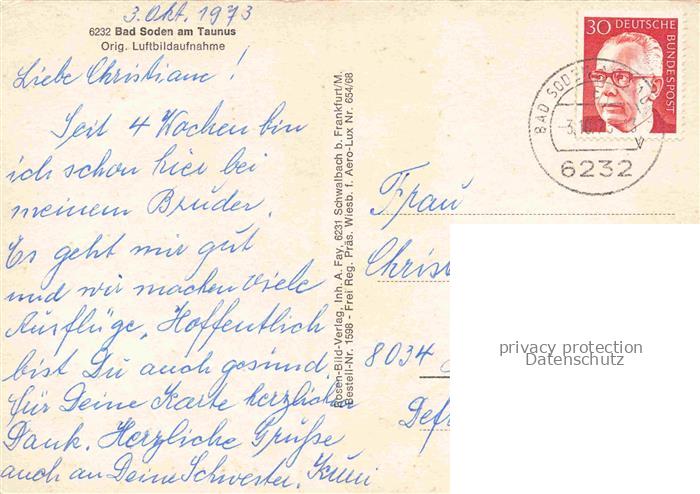 3. Okt. 1973
6232 Bad Soden am Taunus
Orig. Luftbildaufnahme
Liebe Christiane!
Seit 4 Wochen bin
ich schon hier bei
meinem Bruder.
Es geht mir gut
und wir machen viele
Ausflüge, Hoffentlich
bist Du auch gesund.
für Deine Karte herzlichen
Dank. Herzliche Grüße
auch an Deine Schwester, Kuni
Rosen-Bild-Verlag, Inh. A. Fay, 6231 Schwalbach b. Frankfurt/M.
Bestell-Nr. 1598 - Frei Reg. Präs. Wiesb. f. Aero-Lux Nr. 654/68
30 DEUTSCHE
BUNDESPOST
BAD SODEN
-3.10.73
6232
Frau
Christ
8034
privacy protection
Datenschutz